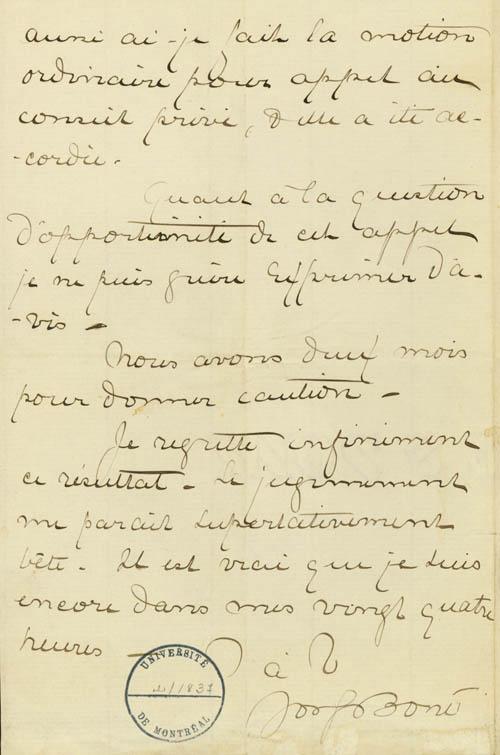 aussi ai-je fait la motion
ordinaire pour appel au
conseil privé, & elle a été ac-
-cordée.
Quant à la question
d'opportunité de cet appel
je ne puis guère exprimer d'a-
-vis -
Nous avons deux mois
pour donner caution -
Je regrette infiniment
ce résultat - Le jugement
me parait superlativement
bête - Il est vrai que je suis
encore dans mes vingt quatre
heures -
à
UNIVERSITÉ
DE MONTRÉAL